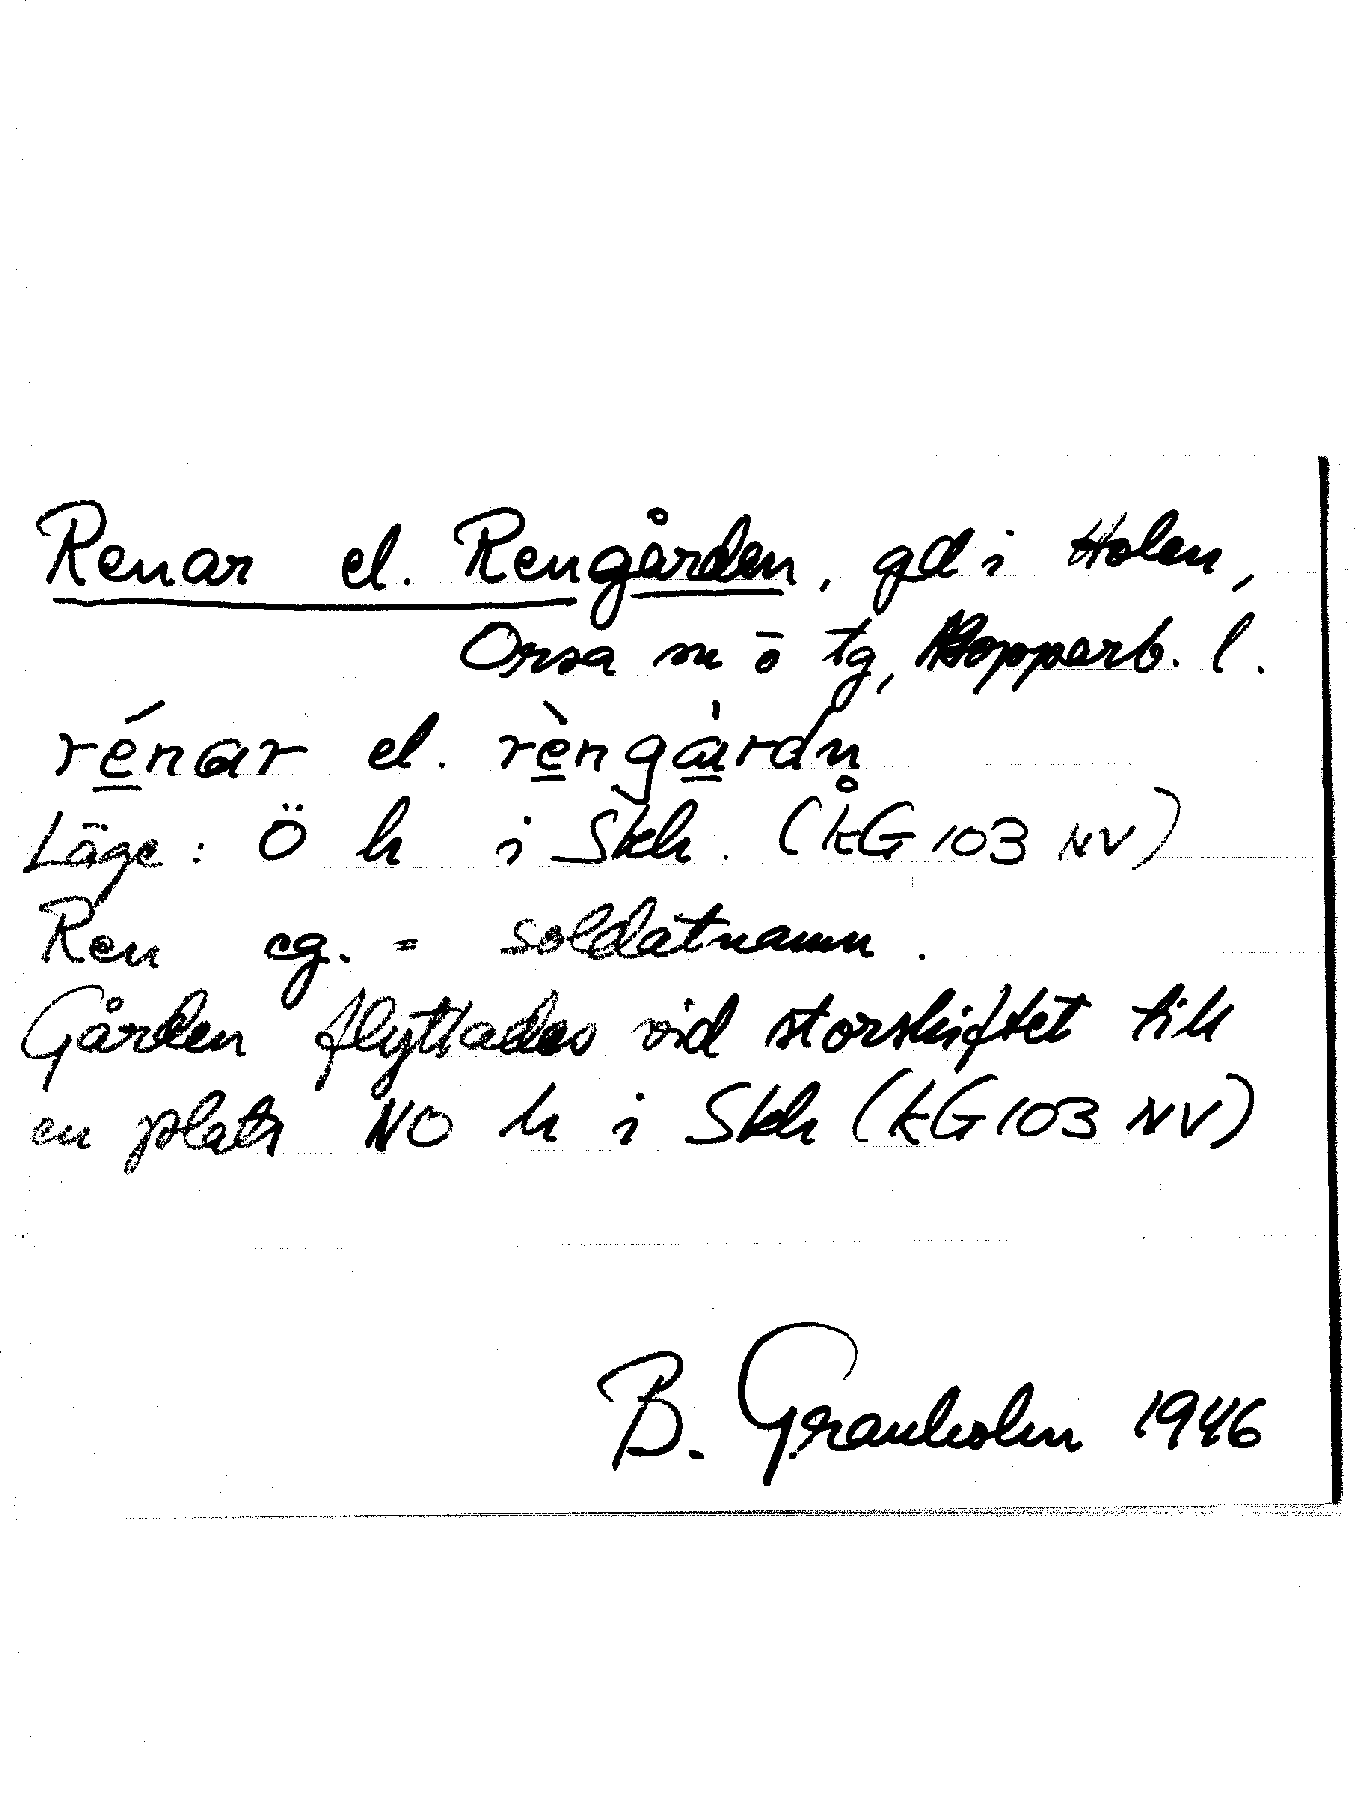 Renar el. Rengården, gd i Holen,
Orsa sn o tg, Kopparb. l.
rénar el. rèngàrdn̥
Läge: Ö h i Skh. (kG 103 NV)
Ren eg. = soldatnamn.
Gården flyttades vid storskiftet till
en plats NO h i Skh (kG 103 NV)
B. Granholm 1946